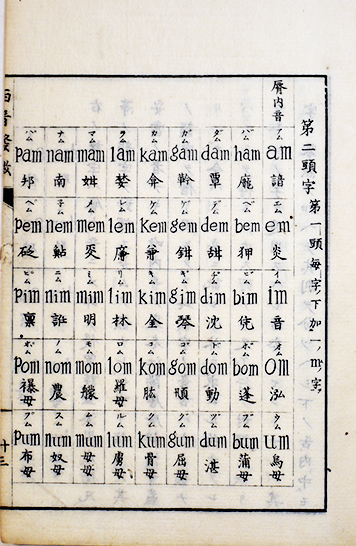 第二頭字 第一頭每字下加一m字
唇内音
パム ナム マム ラム カム ガム ダム バム アム
pam nam mam lam kam gam dam bam am
邦 南 婪 弇 覃 龐 諳
ペム子ム メム レム ケム ゲム デム ベム エム
pem nem mem lem kem gem dem bem em
砭 鮎 廉 鉗 甜 狎 炎
ピム ニム ミム リム キム ギム ヂム ビム イム
pim nim mim lim kim gim dim bim im
稟 明 林 金 琴 沈 音
ポム ノム モム ロム コム ゴム ドム ボム オム
pom nom mom lom kom gom dom bom om
襮母 農 艨 羅母 肱 動 蓬 泓
プム ヌム ムム ルム クム グム ヅム ブム ウム
pum num mum lum kum gum dum bum um
布母 奴母 母母 虜母 骨母 屈母 湛 蒲母 烏母
西音發微
十三